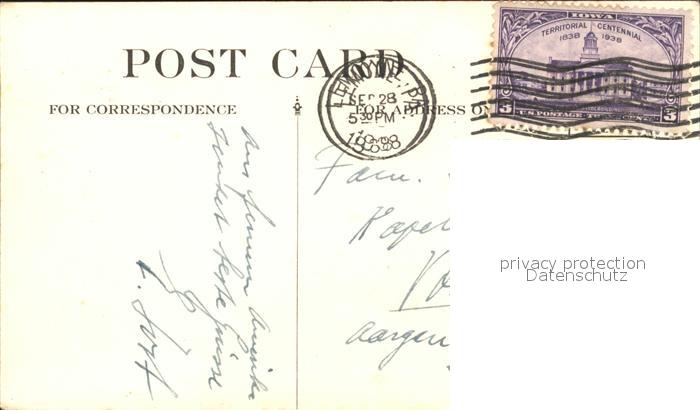 POST CARD
FOR CORRESPONDENCE
FOR ADDRESS ON
LEMOYNE, PA.
SEP 28
5 30 PM
1938
IOWA
TERRITORIAL CENTENNIAL
1838 1938
3 3
U.S. POSTAGE THREE CENTS
Aus fernem Amerika
sendet beste Grüsse
Fam.
Kape
Vo
Aargau
privacy protection
Datenschutz